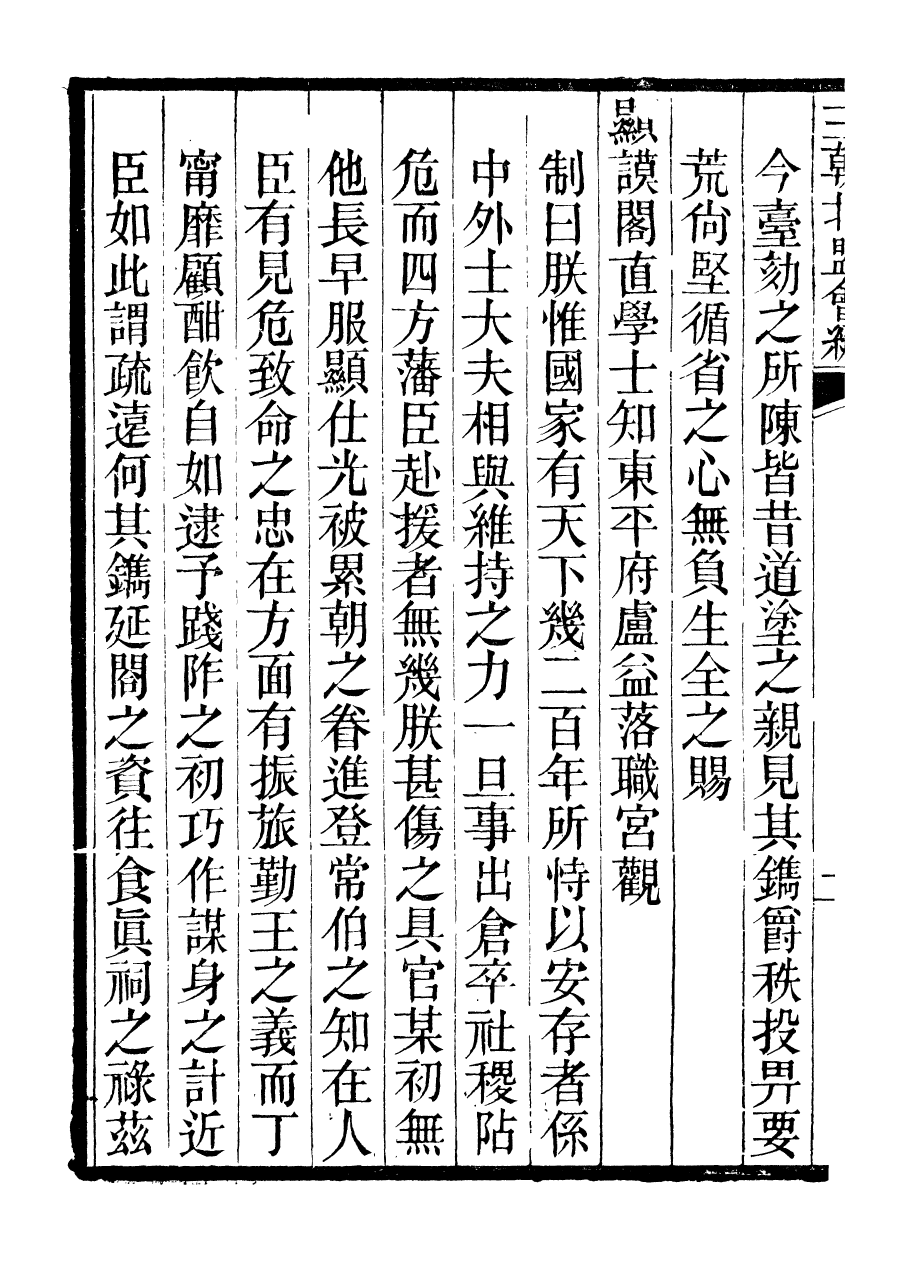 三朝北盟會編
今臺劾之所陳皆昔道塗之親見其鐫爵秩投畀要
荒尙堅循省之心無負生全之賜
顯謨閣直學士知東平府盧益落職宮觀
制曰朕惟國家有天下幾二百年所恃以安存者係
中外士大夫相與維持之力一旦事出倉卒社稷阽
危而四方藩臣赴援者無幾朕甚傷之具官某初無
他長早服顯仕光被累朝之眷進登常伯之知在人
臣有見危致命之忠在方面有振旅勤王之義而丁
甯靡顧酣飮自如逮予踐阼之初巧作謀身之計近
臣如此謂疏遠何其鐫延閣之資往食眞祠之祿茲